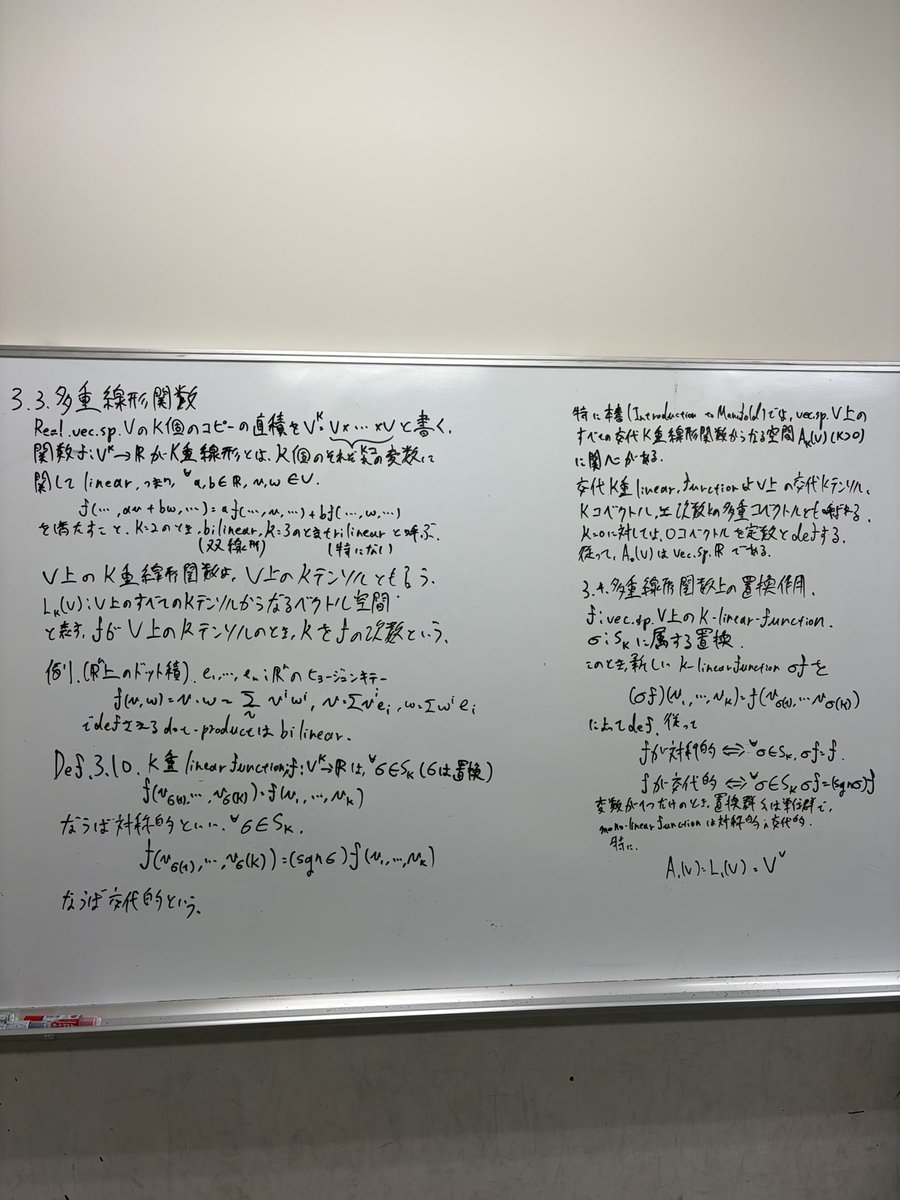 3.3.多重線形関数
Real.vec.sp.VのK個のコピーの直積をVᴷ:V×…×Vと書く.
関数f:Vᴷ→RがK重線形とは,K個のそれぞれの変数に
関してlinear,つまり,∀a,b∈R,v,w∈V.
f(…,av+bw,…)=af(…,v,…)+bf(…,w,…)
を満たすこと.K=2のとき,bilinear,K=3のときtrilinearと呼ぶ.
(双線形) (特にない)
V上のK重線形関数は,V上のKテンソルともいう.
Lₖ(V):V上のすべてのKテンソルからなるベクトル空間
と表す.fがV上のKテンソルのとき,Kをfの次数という.
例).(Rⁿ上のドット積).e₁,…,eₙ:Rⁿのヒョージュンキテー
f(v,w)=v·w=Σvⁱwⁱ,v=Σvⁱeᵢ,w=Σwⁱeᵢ
でdefされるdot-productはbilinear.
Def.3.10.K重linear function;f:Vᴷ→Rは,∀σ∈Sₖ(σは置換)
f(v_σ(1),…,v_σ(k))=f(v₁,…,vₖ)
ならば対称的といい,∀σ∈Sₖ.
f(v_σ(1),…,v_σ(k))=(sgnσ)f(v₁,…,vₖ)
ならば交代的という.
特に本書(Introduction to Manifold)では,vec.sp.V上の
すべての交代K重線形関数からなる空間Aₖ(V)(K>0)
に関心がある.
交代K重linear.functionはV上の交代Kテンソル,
Kコベクトル, 次数kの多重コベクトルとも呼ばれる.
K=0に対しては,0コベクトルを定数とdefする.
従って,A₀(V)はvec.sp.Rである.
3.4.多重線形関数上の置換作用.
f:vec.sp.V上のK-linear-function.
σ:Sₖに属する置換.
このとき,新しいK-linear functionσfを
(σf)(v₁,…,vₖ)=f(v_σ(1),…v_σ(k))
によってdef.従って
fが対称的⇔∀σ∈Sₖ,σf=f.
fが交代的⇔∀σ∈Sₖσf=(sgnσ)f
変数が1つだけのとき,置換群S₁は単位群で,
mono-linear functionは対称的∧交代的.
特に.
A₁(V)=L₁(V)=V^∨